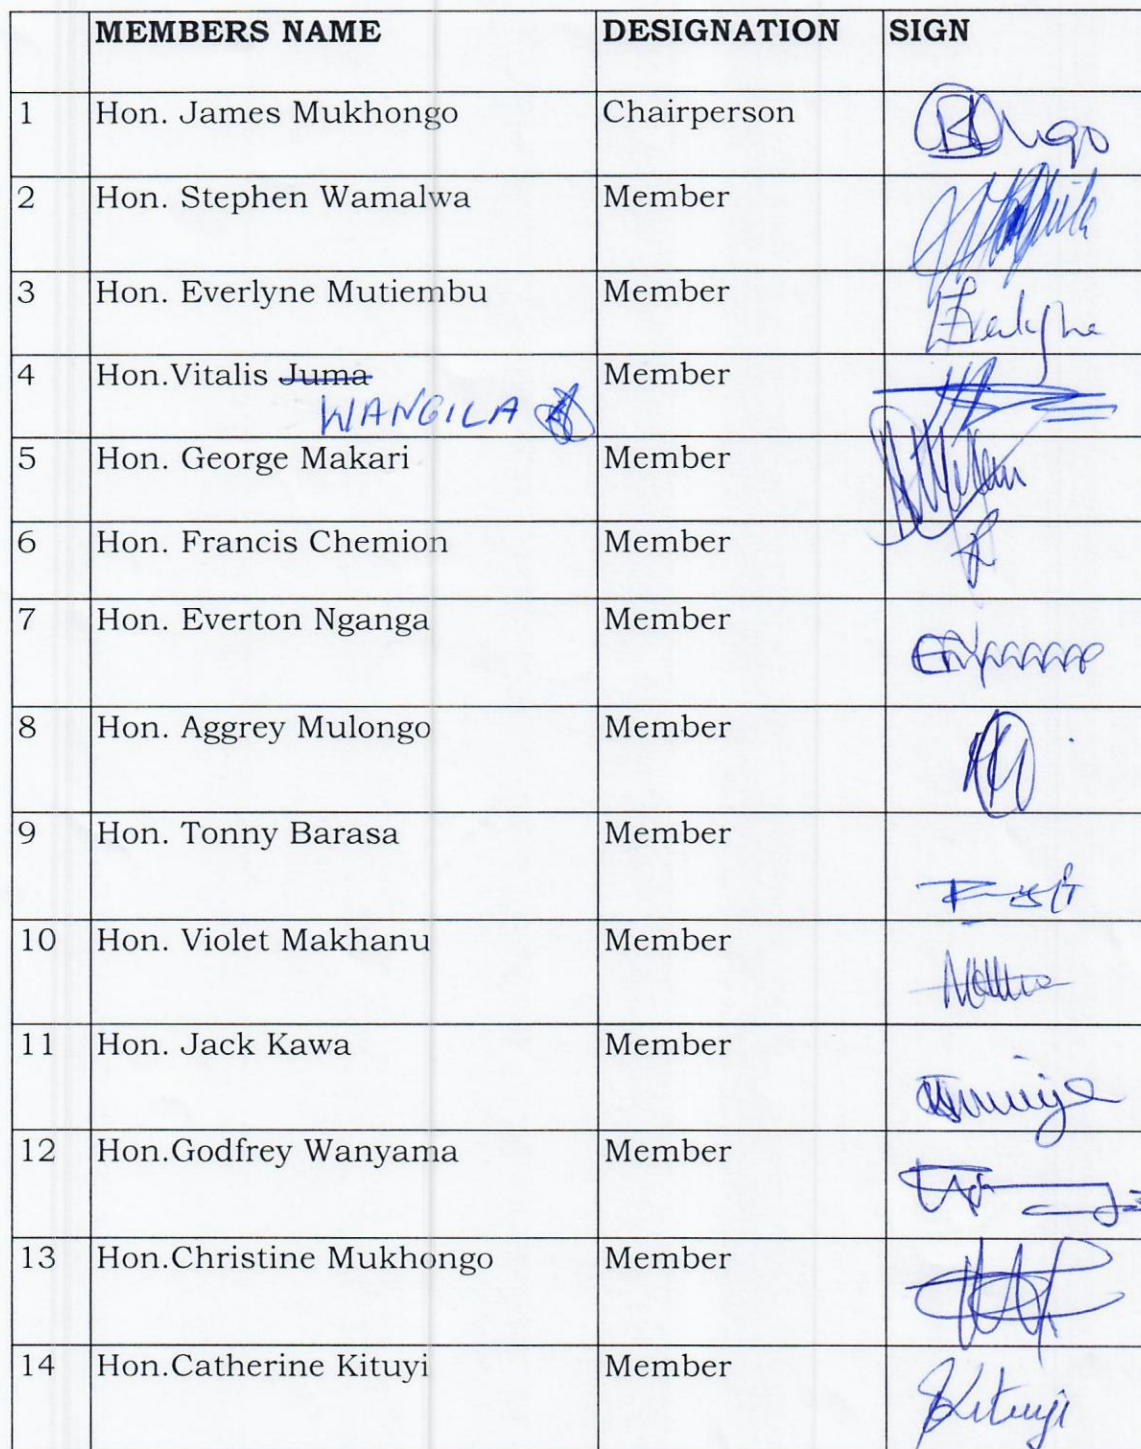 MEMBERS NAME DESIGNATION SIGN
1 Hon. James Mukhongo Chairperson
2 Hon. Stephen Wamalwa Member
3 Hon. Everlyne Mutiembu Member Everlyne
4 Hon.Vitalis Juma Member
WANGILA
5 Hon. George Makari Member
6 Hon. Francis Chemion Member
7 Hon. Everton Nganga Member
8 Hon. Aggrey Mulongo Member
9 Hon. Tonny Barasa Member
10 Hon. Violet Makhanu Member
11 Hon. Jack Kawa Member
12 Hon.Godfrey Wanyama Member
13 Hon.Christine Mukhongo Member
14 Hon.Catherine Kituyi Member Kituyi